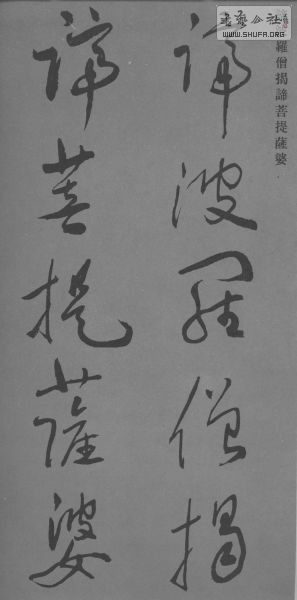 書藝公社
www.SHUFA.ORG
羅僧揭諦菩提薩婆
諦波羅僧揭
諦菩提薩婆